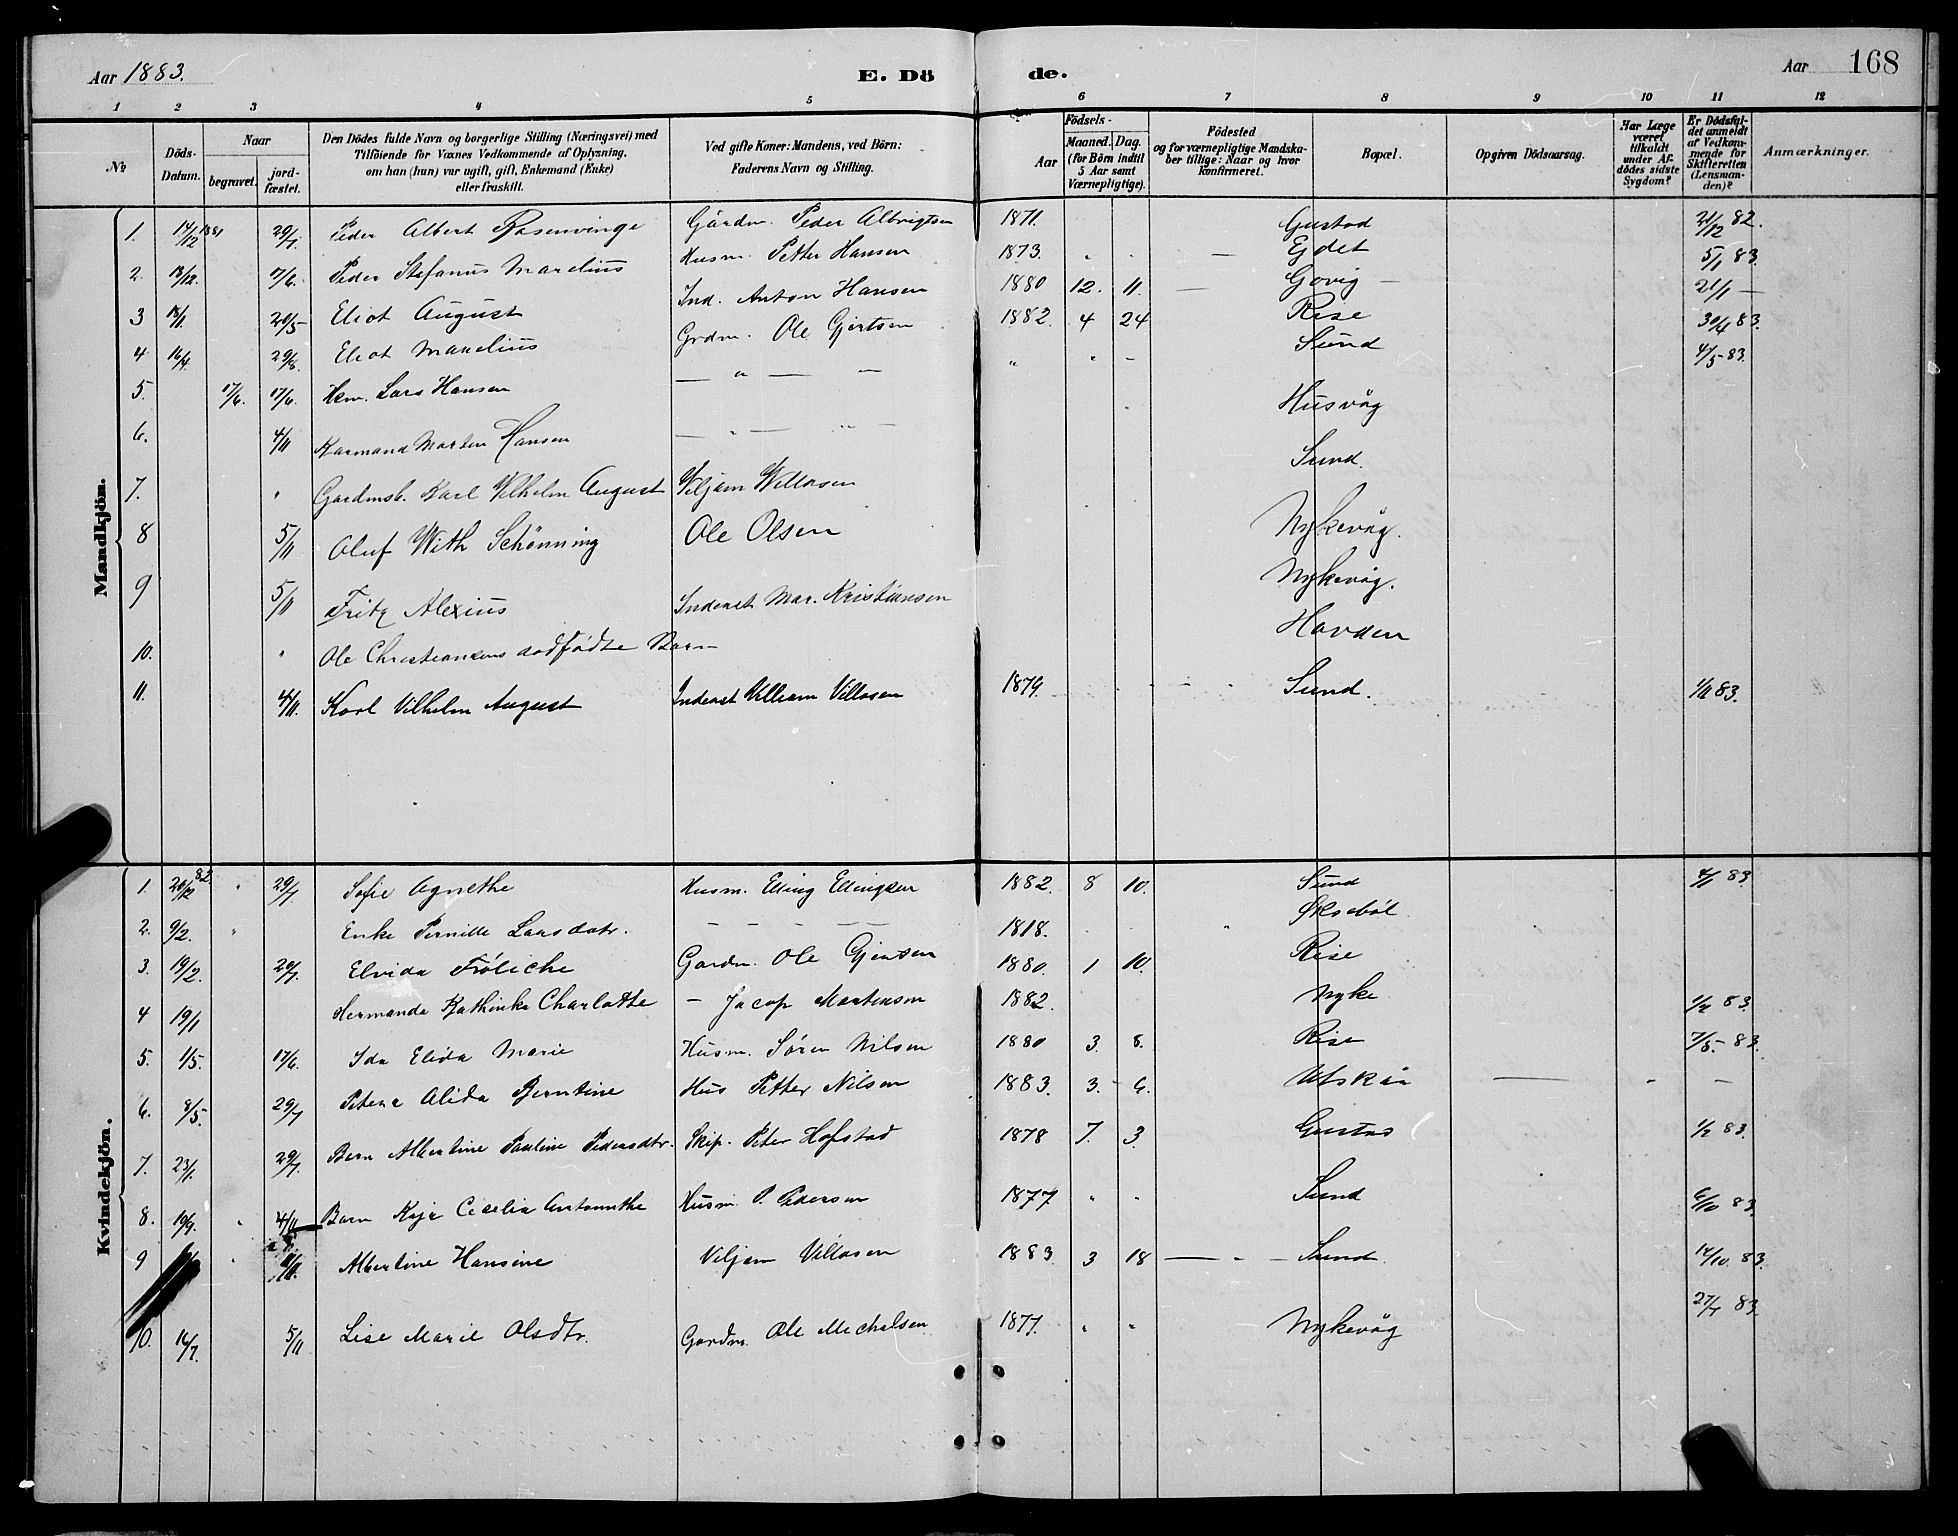 Aar 1883. E. Dö de. Aar 168
1 2 3 4 5 6 7 8 9 10 11 12
No Döds-Datum. Naar begravet. jord-fæstet. Den Dödes fulde Navn og borgerlige Stilling (Næringsvei) med Tilföiende for Voxnes Vedkommende af Oplysning, om han (hun) var ugift, gift, Enkemand (Enke) eller fraskilt. Ved gifte Koner: Mandens, ved Börn: Faderens Navn og Stilling. Födsels- Aar Maaned. Dag. (for Börn indtil 5 Aar samt Værnepligtige). Födested og for værnepligtige Mandska-ber tillige: Naar og hvor konfirmeret. Bopæl. Opgiven Dödsaarsag. Har Læge været tilkaldt under Af-dödes sidste Sygdom? Er Dödsfal-det anmeldt af Vedkom-mende for Skifteretten (Lensman-den)? Anmærkninger.
Mandkjön.
1. 14/12 1881 29/7. Peder Albert Rosenvinge Gårdm. Peder Albrigtsen 1871. Gustad 21/12 82.
2. 18/12. 17/6. Peder Stefanus Marelius Husm. Petter Hansen 1873. " . — Ejdet 5/1 83.
3 18/1. 20/5- Eliot August Ind. Anton Hansen 1880 12. 11. — Govig — 21/1 —
4 16/4 29/8. Eliot Marelius Grdm. Ole Gjertsen 1882. 4 24 Rise 30/4 83.
5. 17/6. 17/6. Kem. Lars Hansen — " — — " " - Sund 4/5-83.
6. 4/11 Karmand Morten Hansen — " — " — Husvåg
7. " Gardmsb. Karl Vilhelm August Viljam Villasen Sund.
8 5/11 Oluf With Schønning Ole Olsen Nykevåg.
9 5/11 Fritz Alexius Inderst Mar. Kristiansen Nykevåg.
10. " Ole Christiansens dødfødte Barn — Hovden
11. 4/11. Karl Vilhelm August Inderst William Villasen 1879. Sund. 1/11 83.
Kvindekjön.
1. 20/12 82 " 29/7 Sofie Agnethe Husm. Elling Ellingsen 1882. 8 10. Sund 4/1 83
2. 9/2. " Enke Pernille Larsdatr. — — — — 1818. " Øksebøl
3. 19/2. 20/7. Elvida Frøliche Gardm. Ole Gjertsen 1880. 1 10. Rise
4 19/1 Hermanda Kathinka Charlotte — Jacop Martensen 1882. Nyke 1/2 83.
5. 1/5. 17/6. Ida Elida Marie Husm. Søren Nilsen 1880 3. 8. Rise 7/5- 83.
6. 8/5. 29/7 Petena Alida Berntine Hus Petter Nilsen 1883. 3.- 6. Utskår — - —
7. 23/1. 29/7. Barn Albertine Pauline Pedersdtr. Skip. Peter Hofstad 1878 7. 3 Gustad 1/2 83.
8. 19/9. " 4/11 Barn Kaja Cecelia Antonnthe Husm. P. Pedersen 1877 " " Sund 6/10 83.
9 " Albertine Hansine Viljam Villasen 1883 3 18 — " — Sund 14/10. 83.
10. 16/7. 5/11 Lise Marie Olsdtr. Gardm. Ole Michelsen 1877. " " Nykevåg 27/7 83.